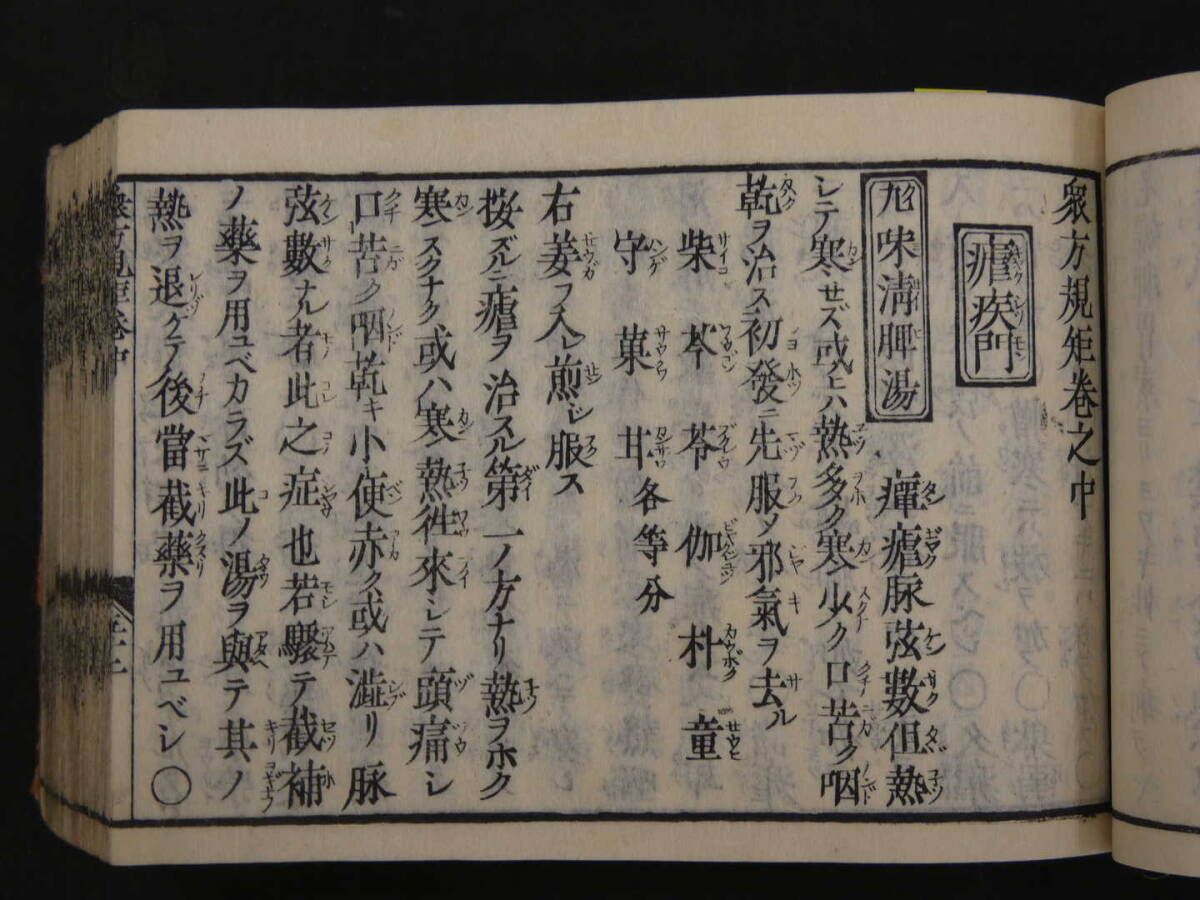 衆方規矩卷之中
瘧疾門
九味淸脾湯
癉瘧脉弦數但熱
シテ寒セズ或ヒハ熱多ク寒少ク口苦ク咽
乾ヲ治ス初發ニ先服メ邪氣ヲ去ル
柴 芩 苓 伽 朴 童
守 菓 甘 各等分
右姜フ入レ煎ジ服ス
按ズルニ瘧ヲ治スル第一ノ方ナリ熱ヲホク
寒スクナク或ハ寒熱徃來シテ頭痛シ
口苦ク咽乾キ小便赤ク或ハ澁リ脉
弦數ナル者此之症也若驟テ截補
ノ藥ヲ用ユベカラズ此ノ湯ヲ與テ其ノ
熱ヲ退ゲテ後當截藥ヲ用ユベシ〇